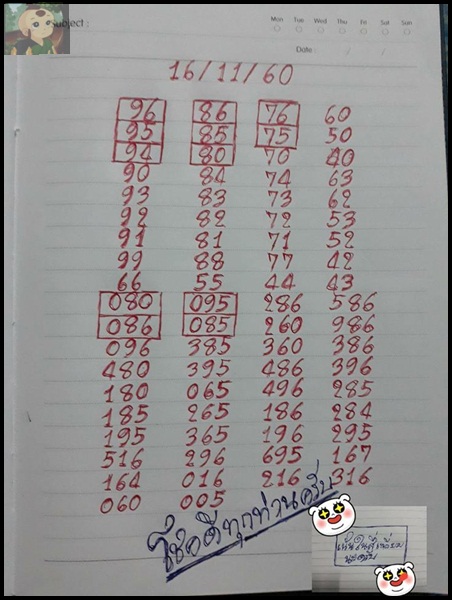 Subject :
Mon Tue Wed Thu Fri Sat Sun
Date : / /
16/11/60
96 86 76 60
95 85 75 50
94 80 70 40
90 84 74 63
93 83 73 62
92 82 72 53
91 81 71 52
99 88 77 42
66 55 44 43
080 095 286 586
086 085 260 986
096 385 360 386
480 395 486 396
180 065 496 285
185 265 186 284
195 365 196 295
516 296 695 167
164 016 216 316
060 005
โชคดีทุกท่านครับ
นะครับ